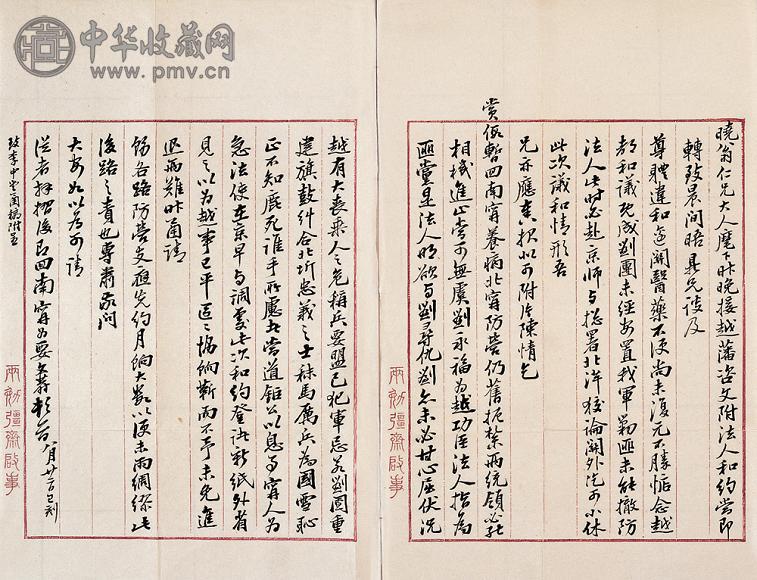 中华收藏网
www.pmv.cn
曉翁仁兄大人麾下昨晚接越藩咨文附法人和約當即
轉致晨間晤鼎兄談及
尊體違和邊關醫藥不便尚未復元不勝惦念越
都和議既成劉團未經安置我軍勦匪未能撤防
法人此時必赴京師與總署北洋狡論關外沅可小休
此次議和情形吾
兄亦應具報似可附片陳情乞
賞假暫回南甯養病北甯防營仍舊扼紮兩統領必能
相機進止當可無虞劉永福為越功臣法人指為
匪黨是法人明欲與劉尋仇劉亦未必甘心屈伏況
越有大喪乘人之危稱兵要盟已犯軍忌若劉團重
建旗鼓糾合北圻忠義之士秣馬厲兵為國雪恥
正不知鹿死誰手所慮者當道鉅公以息事甯人為
急法使在京早與調處此次和約登諸新紙外省
見之以為越事已平區區協餉靳而不予未免進
退兩難昨函請
飭各路防營支應先約月餉大數以便未雨綢繆此
後路之責也專肅敬問
大安如以為可請
從者拜摺後即回南甯為要 八月廿六日巳刻
致李中丞函稿附呈
兩勉彊齋啟事
兩勉彊齋啟事